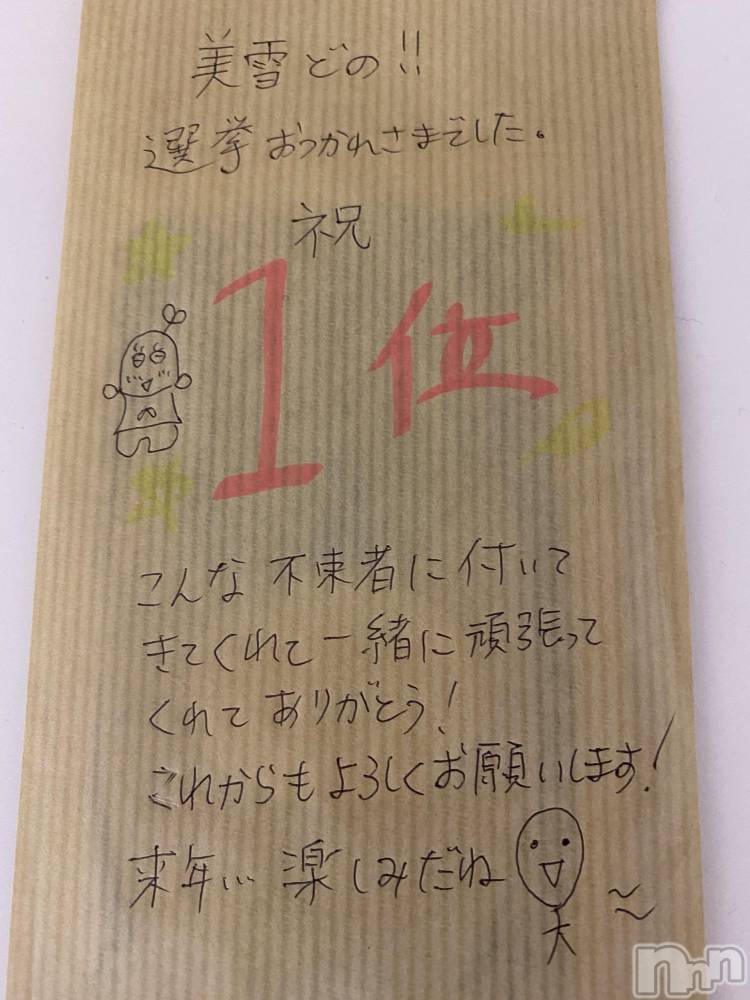 美雪どの!!
選挙おつかれさまでした。
祝
1位
こんな不束者に付いて
きてくれて一緒に頑張って
くれてありがとう!
これからもよろしくお願いします!
来年... 楽しみだね
nnn